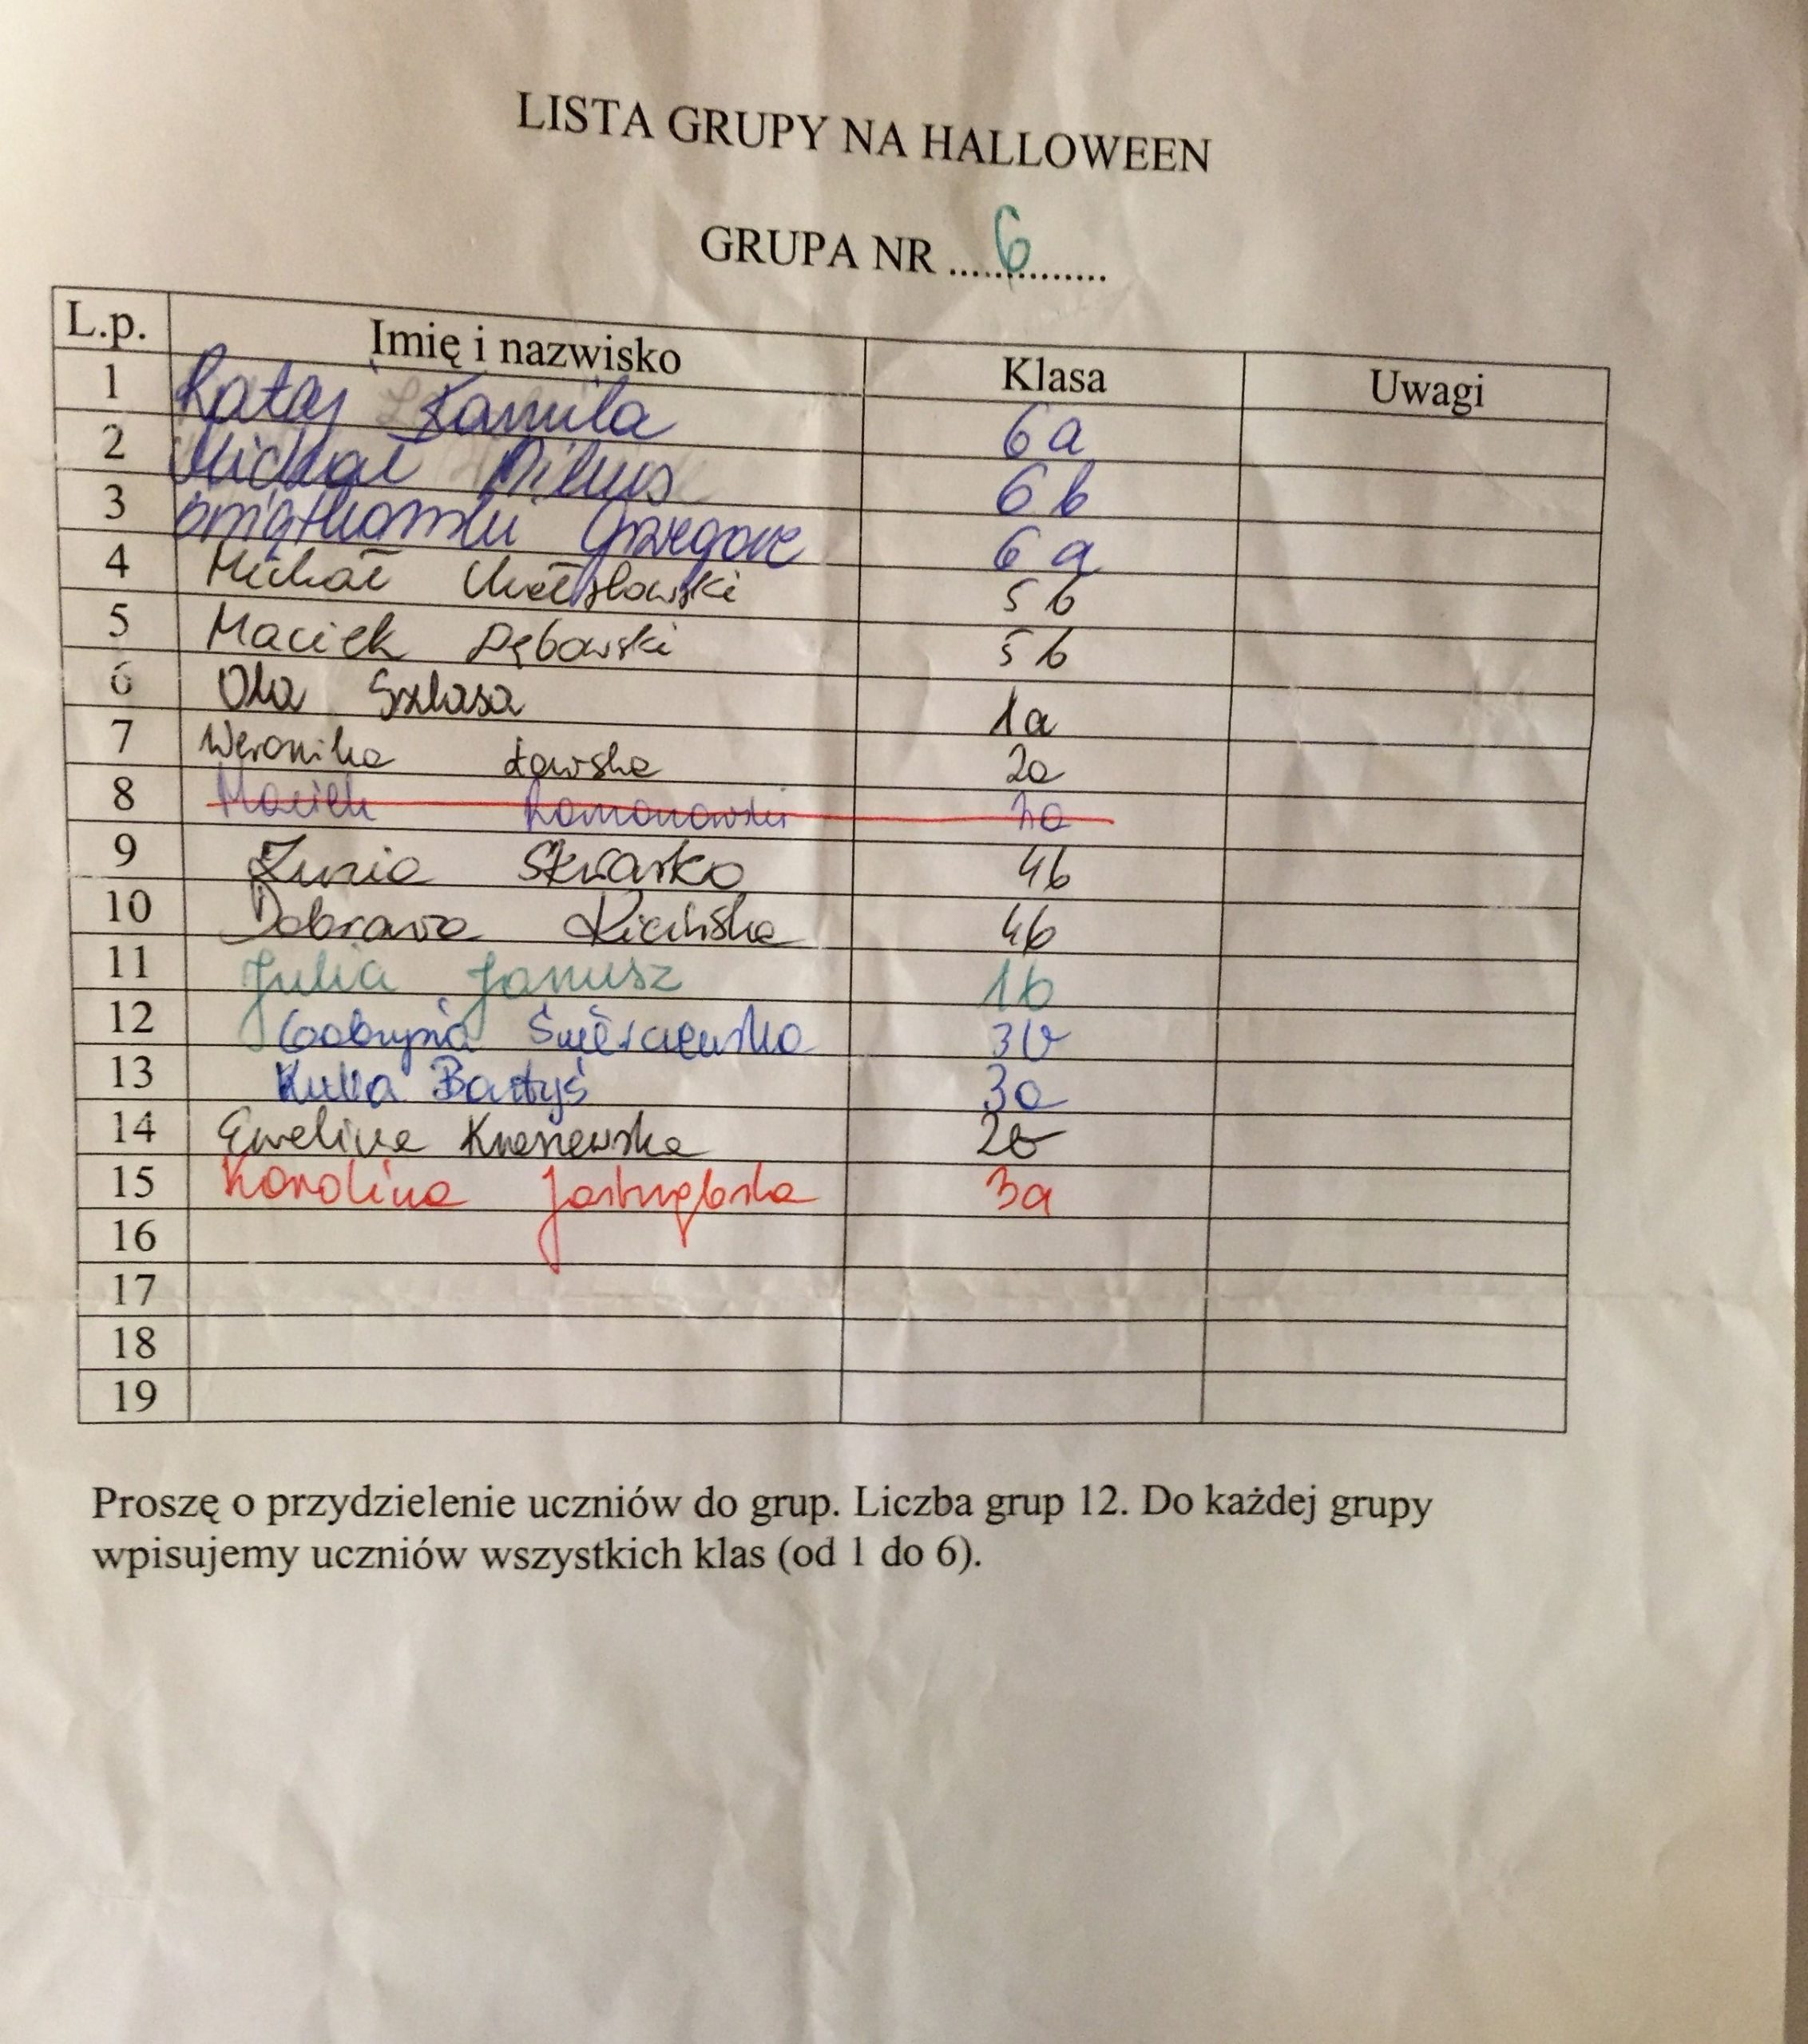 LISTA GRUPY NA HALLOWEEN
GRUPA NR ..............6
L.p. Imię i nazwisko Klasa Uwagi
1 Rataj Kamila 6a
2 Michał 6b
3 Grzegorz 6a
4 Michał 5b
5 Maciek Dębowski 5b
6 Ola Szlasa 1a
7 Weronika Ławska 2a
8 Maciek Romanowski
9 Zunia Skwarko 4b
10 Dobrawa Kicińska 4b
11 Julia Janusz 1b
12 Gabrysia Świerczewska 3b
13 Kuba Bartyś 3a
14 Ewelina Kraszewska 2b
15 Karolina Jastrzębska 3a
16
17
18
19
Proszę o przydzielenie uczniów do grup. Liczba grup 12. Do każdej grupy
wpisujemy uczniów wszystkich klas (od 1 do 6).